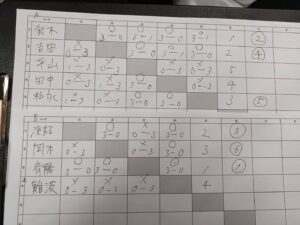 A
鈴木 ○ 3-0 ○ 3-1 ○ 3-0 ○ 3-1 1 ②
吉田 × 0-3 ○ 3-1 ○ 3-0 2 ④
平山 × 1-3 × 0-3 × 0-3 × 0-3 5
田中 × 0-3 × 1-3 ○ 3-0 × 0-3 4
× 1-3 × 0-3 ○ 3-0 ○ 3-0 3 ⑤
B
○ 3-0 × 0-3 ○ 3-0 2 ③
岡本 × 0-3 × 0-3 ○ 3-0 3 ⑥
斉藤 ○ 3-0 ○ 3-0 ○ 3-0 1 ①
難波 × 0-3 × 0-3 × 0-3 4